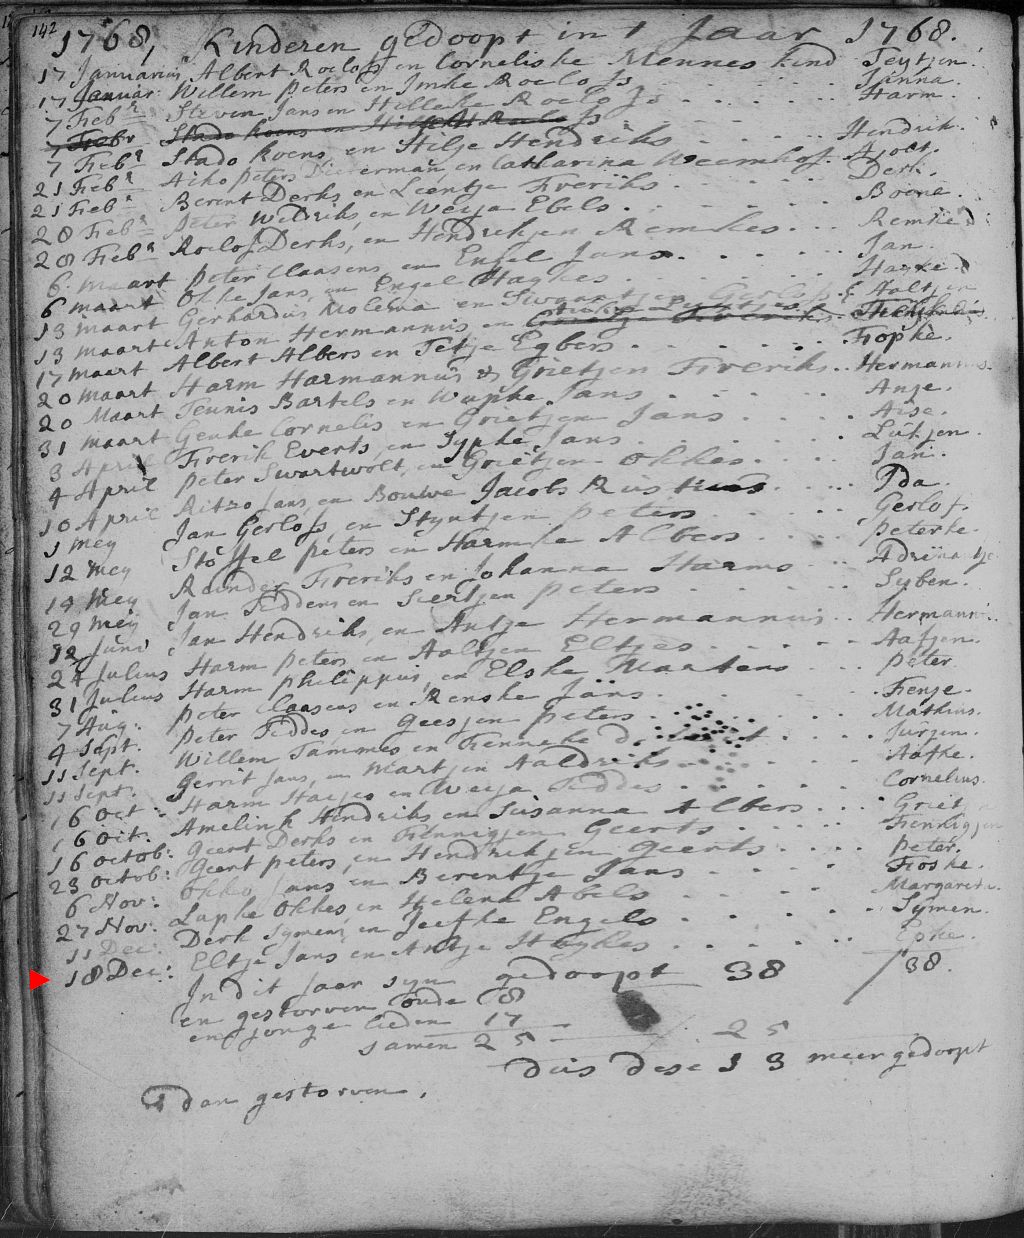 142
1768, Kinderen gedoopt in 't Jaar 1768.
17 Januarius Albert Roelofs en Corneliske Mennes kind Teytjen.
17 Januar: Willem peters en Imke Roelofs Janna.
7 Febr Steven Jans en Hilleke Roelofs Harm.
7 Febr Stado Koens en
7 Febr Stado Koens en Hilje Hendriks Hendrik.
21 Febr Aiko peters Dieterman, en Catharina Veemhof.
21 Febr Berent Derks en Leentje Freriks Derk.
28 Febr peter Wildriks, en Weija Ebels Boene.
28 Febr Roelof Derks, en Hendrikjen Remkes Remke
6 maart peter Claasens en Engel Jans Jan
6 maart Okke Jans, en Engel Haykes Hayke
13 maart Gerhardus Molema en Swaantjen Gerlofs Aaltjen
13 maart Anton Hermannus en
17 maart Albert Albers en Tetje Egbers Fopke.
20 maart Harm Harmannus & Grietjen Freriks Hermannus.
20 Maart Teunis Bartels en Wupke Jans Anje.
31 maart Genke Cornelis en Grietjen Jans Aise.
3 April Frerik Everts, en Sypke Jans Lutjen.
4 April peter Swartwolt, en Grietjen Okkes Jan.
10 April Ritzo Jans, en Bouwe Jacobs Rust Ida.
1 Mey Jan Gerlofs en Styntjen peters Gerlof.
12 Mey Stoffel peters en Harmke Albers peterke.
19 Mey Reinder Freriks en Johanna Harms
29 Mey Jan Fiddens en Siertjen peters Syben.
12 Juni Jan Hendriks, en Antje Hermannus Hermann
24 Julius Harm peters en Aaltjen Eltjes Aafjen.
31 Julius Harm philippus, en Elske Maartens peter.
7 Aug: peter Claasens en Renske Jans Fenje.
4 Sept. peter Fiddes en Geesjen peters Mathius.
11 Sept. Willem Tammes en Fenneke Jurjen.
11 Sept. Gerrit Jans, en Martjen Aaldriks Aafke.
16 Oct: Harm Haijes en Weija Fiddes Cornelius.
16 Oct. Amelink Hindriks en Susanna Albers Grietje
16 Octob: Geert Derks en Fennigjen Geerts Fennigjen
23 Octob: Geert peters, en Hendrikjen Geerts peter.
6 Nov: Okko Jans en Berentje Jans Foske.
27 Nov: Lupke Okkes, en Helena Abels Margareta.
11 Dec: Derk Symens, en Jeefke Engels Symen.
18 Dec: Eltje Jans en Antje Haykes Epke.
In dit jaar syn gedoopt 38 38.
en gestorven oude 8
en jonge lieden 17
samen 25 25
dus dese 13 meer gedoopt
dan gestorven.